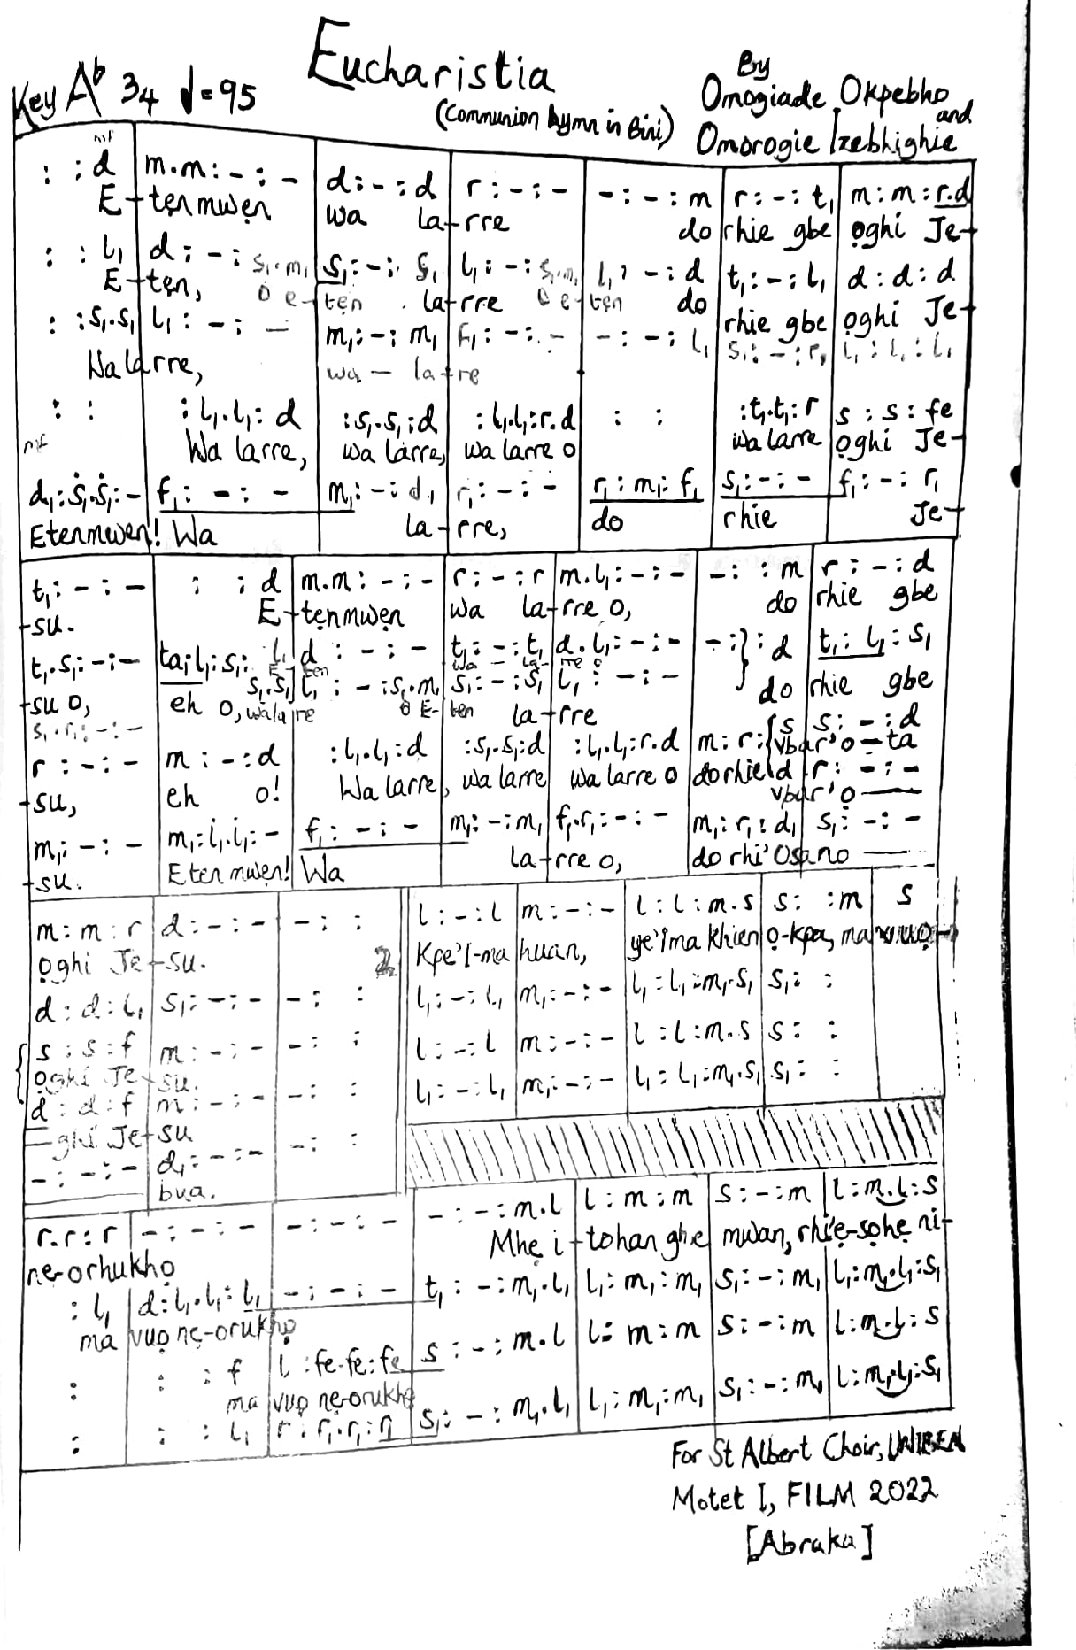 Eucharistia
(Communion hymn in Bini)
By
Omogiade Okpebho
and
Omorogie Izebhighie
Key Ab 34 d=95
mf
: : d | m.m : - : - | d : - : d | r : - : - | - : - : m | r : - : t₁ | m : m : r.d
E-tẹnmwẹn wa la-rre do rhie gbe ọghi Je-
: : l₁ | d : - : s₁.m₁ | s₁ : - : s₁ | l₁ : - : s₁.m₁ | l₁ : - : d | t₁ : - : l₁ | d : d : d
E-tẹn, O e-tẹn la-rre O e-tẹn do rhie gbe ọghi Je-
: : s₁.s₁ | l₁ : - : - | m₁ : - : m₁ | f₁ : - : - | - : - : l₁ | s₁ : - : r₁ | l₁ : l₁ : l₁
Wa larre, wa - la-rre
: : | : l₁.l₁ : d | : s₁.s₁ : d | : l₁.l₁ : r.d | : : | : t₁.t₁ : r | s : s : fe
Wa larre, wa larre, wa larre o wa larre ọghi Je-
mf
d₁ : s₁.s₁ : - | f₁ : - : - | m₁ : - : d₁ | r₁ : - : - | r₁ : m₁ : f₁ | s₁ : - : - | f₁ : - : r₁
Etenmwen! Wa la-rre, do rhie Je-
t₁ : - : - | : : d | m.m : - : - | r : - : r | m.l₁ : - : - | - : : m | r : - : d
-su. E-tẹnmwẹn wa la-rre o, do rhie gbe
t₁.s₁ : - : - | ta₁ : l₁ : s₁ : l₁ | d : - : - | t₁ : - : t₁ | d.l₁ : - : - | - : : d | t₁ : l₁ : s₁
-su o, eh o, E-ten wa - la-rre o do rhie gbe
s₁.r₁ : - : - | s₁.s₁ | l₁ : - : s₁.m₁ | s₁ : - : s₁ | l₁ : - : -
walarre O E-ten la-rre
s | s : - : d
vbar'o-ta
r : - : - | m : - : d | : l₁.l₁ : d | : s₁.s₁ : d | : l₁.l₁ : r.d | m : r : d | r : - : -
-su, eh o! Wa larre, wa larre wa larre o do rhie vbar'o
m₁ : - : - | m₁ : l₁.l₁ : - | f₁ : - : - | m₁ : - : m₁ | f₁.r₁ : - : - | m₁ : r₁ : d₁ | s₁ : - : -
-su. Eten mwen! Wa la-rre o, do rhi'Osano
m : m : r | d : - : - | - : : | l : - : l | m : - : - | l : l : m.s | s : : m | s
ọghi Je-su. 2. Kpe'I-ma huan, ye'Ima khien ọ-kpa, ma vuọ-
d : d : l₁ | s₁ : - : - | - : : | l₁ : - : l₁ | m₁ : - : - | l₁ : l₁ : m₁.s₁ | s₁ : :
s : s : f | m : - : - | - : : | l : - : l | m : - : - | l : l : m.s | s : :
ọghi Je-su.
d : d : f | m : - : - | - : : | l₁ : - : l₁ | m₁ : - : - | l₁ : l₁ : m₁.s₁ | s₁ : :
-ghi Je-su
- : - : - | d₁ : - : - | - : :
bua.
r.r : r | - : - : - | - : - : - | - : - : m.l | l : m : m | s : - : m | l : m.l : s
nẹ-orhukhọ Mhẹ i-tohan ghe mwan, rhi'ẹ-sọhẹ ni-
: l₁ | d : l₁.l₁ : l₁ | - : - : - | t₁ : - : m₁.l₁ | l₁ : m₁ : m₁ | s₁ : - : m₁ | l₁ : m₁.l₁ : s₁
ma vuọ nẹ-orukhọ
: | : : f | l : fe.fe : fe | s : - : m.l | l : m : m | s : - : m | l : m.l : s
ma vuọ nẹ-orukhọ
: | : : l₁ | r : r₁.r₁ : r₁ | s₁ : - : m₁.l₁ | l₁ : m₁ : m₁ | s₁ : - : m₁ | l : m₁.l₁ : s₁
For St Albert Choir, UNIBEN
Motet I, FILM 2022
[Abraka]